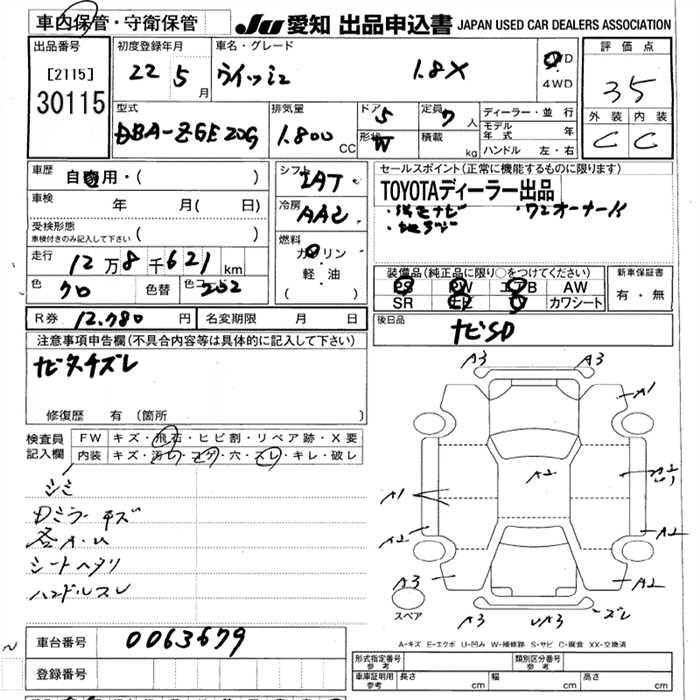 車内保管・守衛保管
JU 愛知 出品申込書 JAPAN USED CAR DEALERS ASSOCIATION
出品番号
[2115]
30115
初度登録年月
22 5 月
車名・グレード
ウイッシュ 1.8X
4WD
評価点
35
外装 内装
C C
型式
DBA-ZGE20G
排気量
1.800 CC
ドア 5
形状 W
定員 7 人
積載 kg
ディーラー・並行
モデル年式 年
ハンドル 左・右
車歴
自家用・( )
車検 年 月( 日)
受検形態
車検付きのみ記入して下さい ( )
走行
12万8千621 km
色 クロ 色替 色コード 202
シフト
IAT
冷房
AAC
燃料
ガソリン
・
軽・油
( )
セールスポイント(正常に機能するものに限ります)
TOYOTAディーラー出品
・純正ナビ ・ワンオーナー
・地デジ
装備品(純正品に限り○をつけてください)
PS PW エアB AW
SR カワシート
新車保証書
有・無
R券 12.780 円 名変期限 月 日
後日品
ナビSD
注意事項申告欄(不具合内容等は具体的に記入して下さい)
ナビタッチズレ
修復歴 有 (箇所 )
検査員
記入欄
FW キズ・飛石・ヒビ割・リペア跡・X要
内装 キズ・汚レ・コゲ・穴・スレ・キレ・破レ
シミ
Dミラーキズ
シートヘタリ
ハンドルスレ
A3 A3
A1
A2
A1
A2 A2
A3 A2
スペア
A3 A3 ズレ
A-キズ E-エクボ U-凹み W-補修跡 S-サビ C-腐食 XX-交換済
車台番号 0063679
登録番号
形式指定番号
参考
類別区分番号
参考
車庫証明用
参考
長さ cm 幅 cm 高さ cm